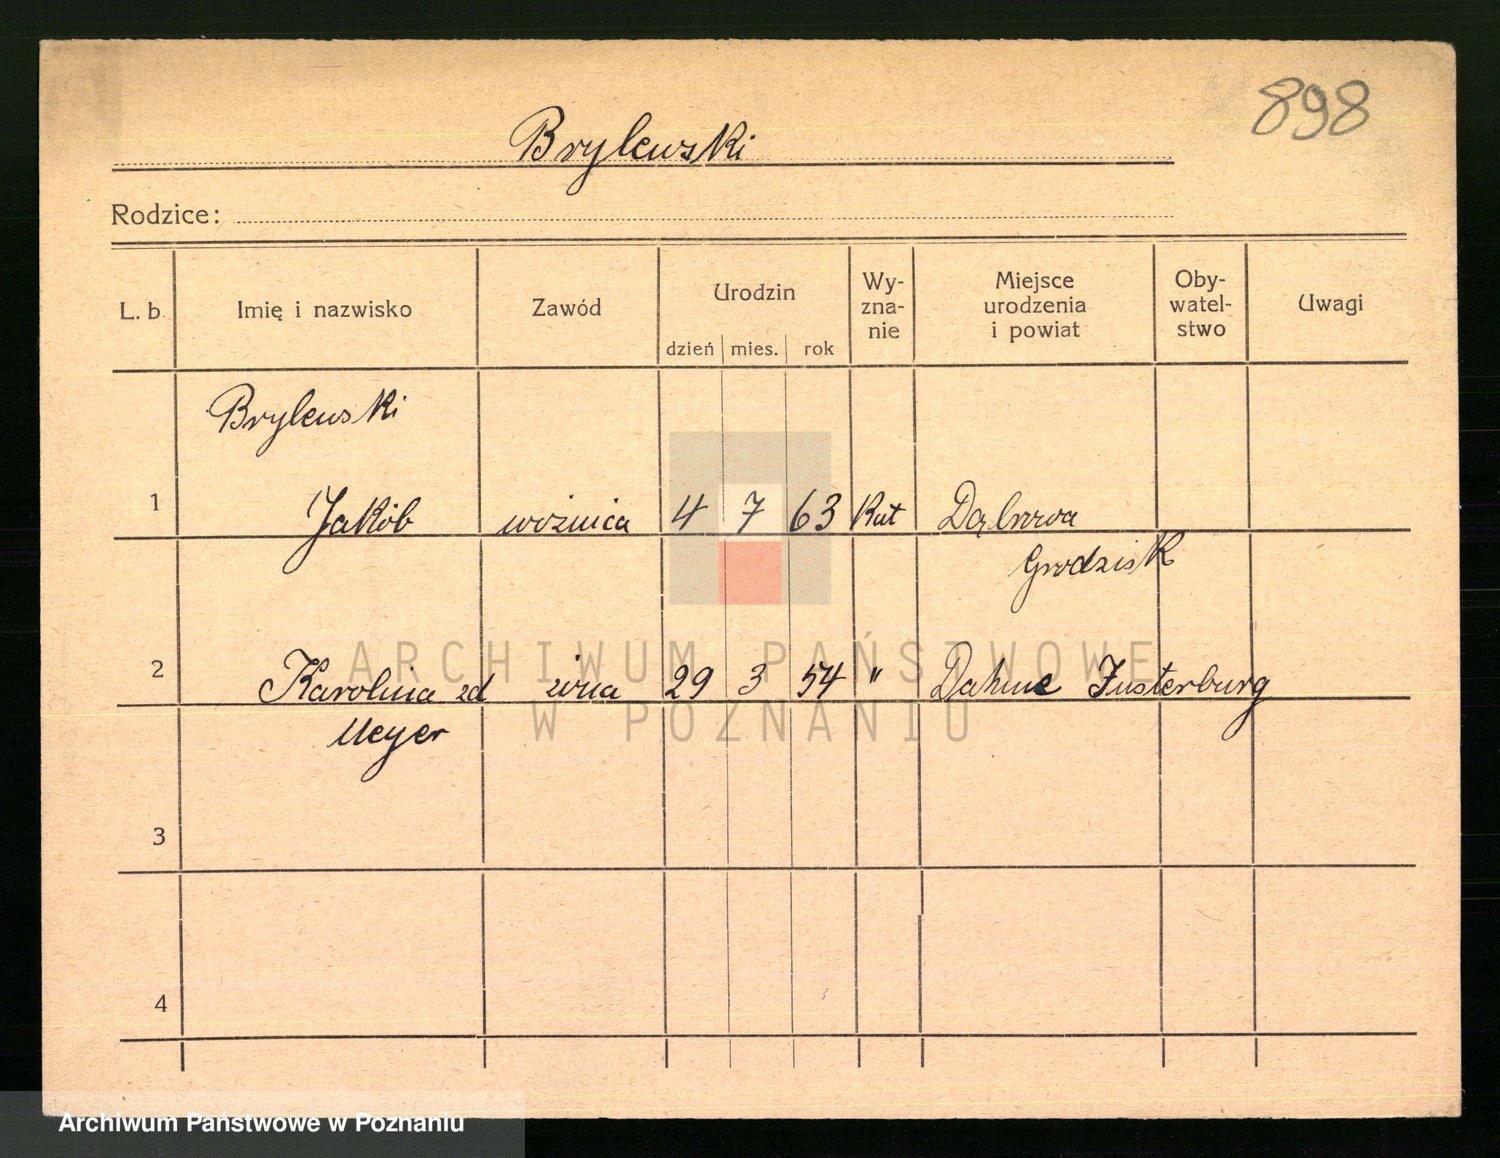 898
Brylewski
Rodzice:
L. b. Imię i nazwisko Zawód Urodzin dzień mies. rok Wy- zna- nie Miejsce urodzenia i powiat Oby- watel- stwo Uwagi
Brylewski
1 Jakób woźnica 4 7 63 Kat Dąbrowa
Grodzisk
2 Karolina zd żona 29 3 54 " Dahme Insterburg
Meyer
3
4
ARCHIWUM PAŃSTWOWE
W POZNANIU
Archiwum Państwowe w Poznaniu